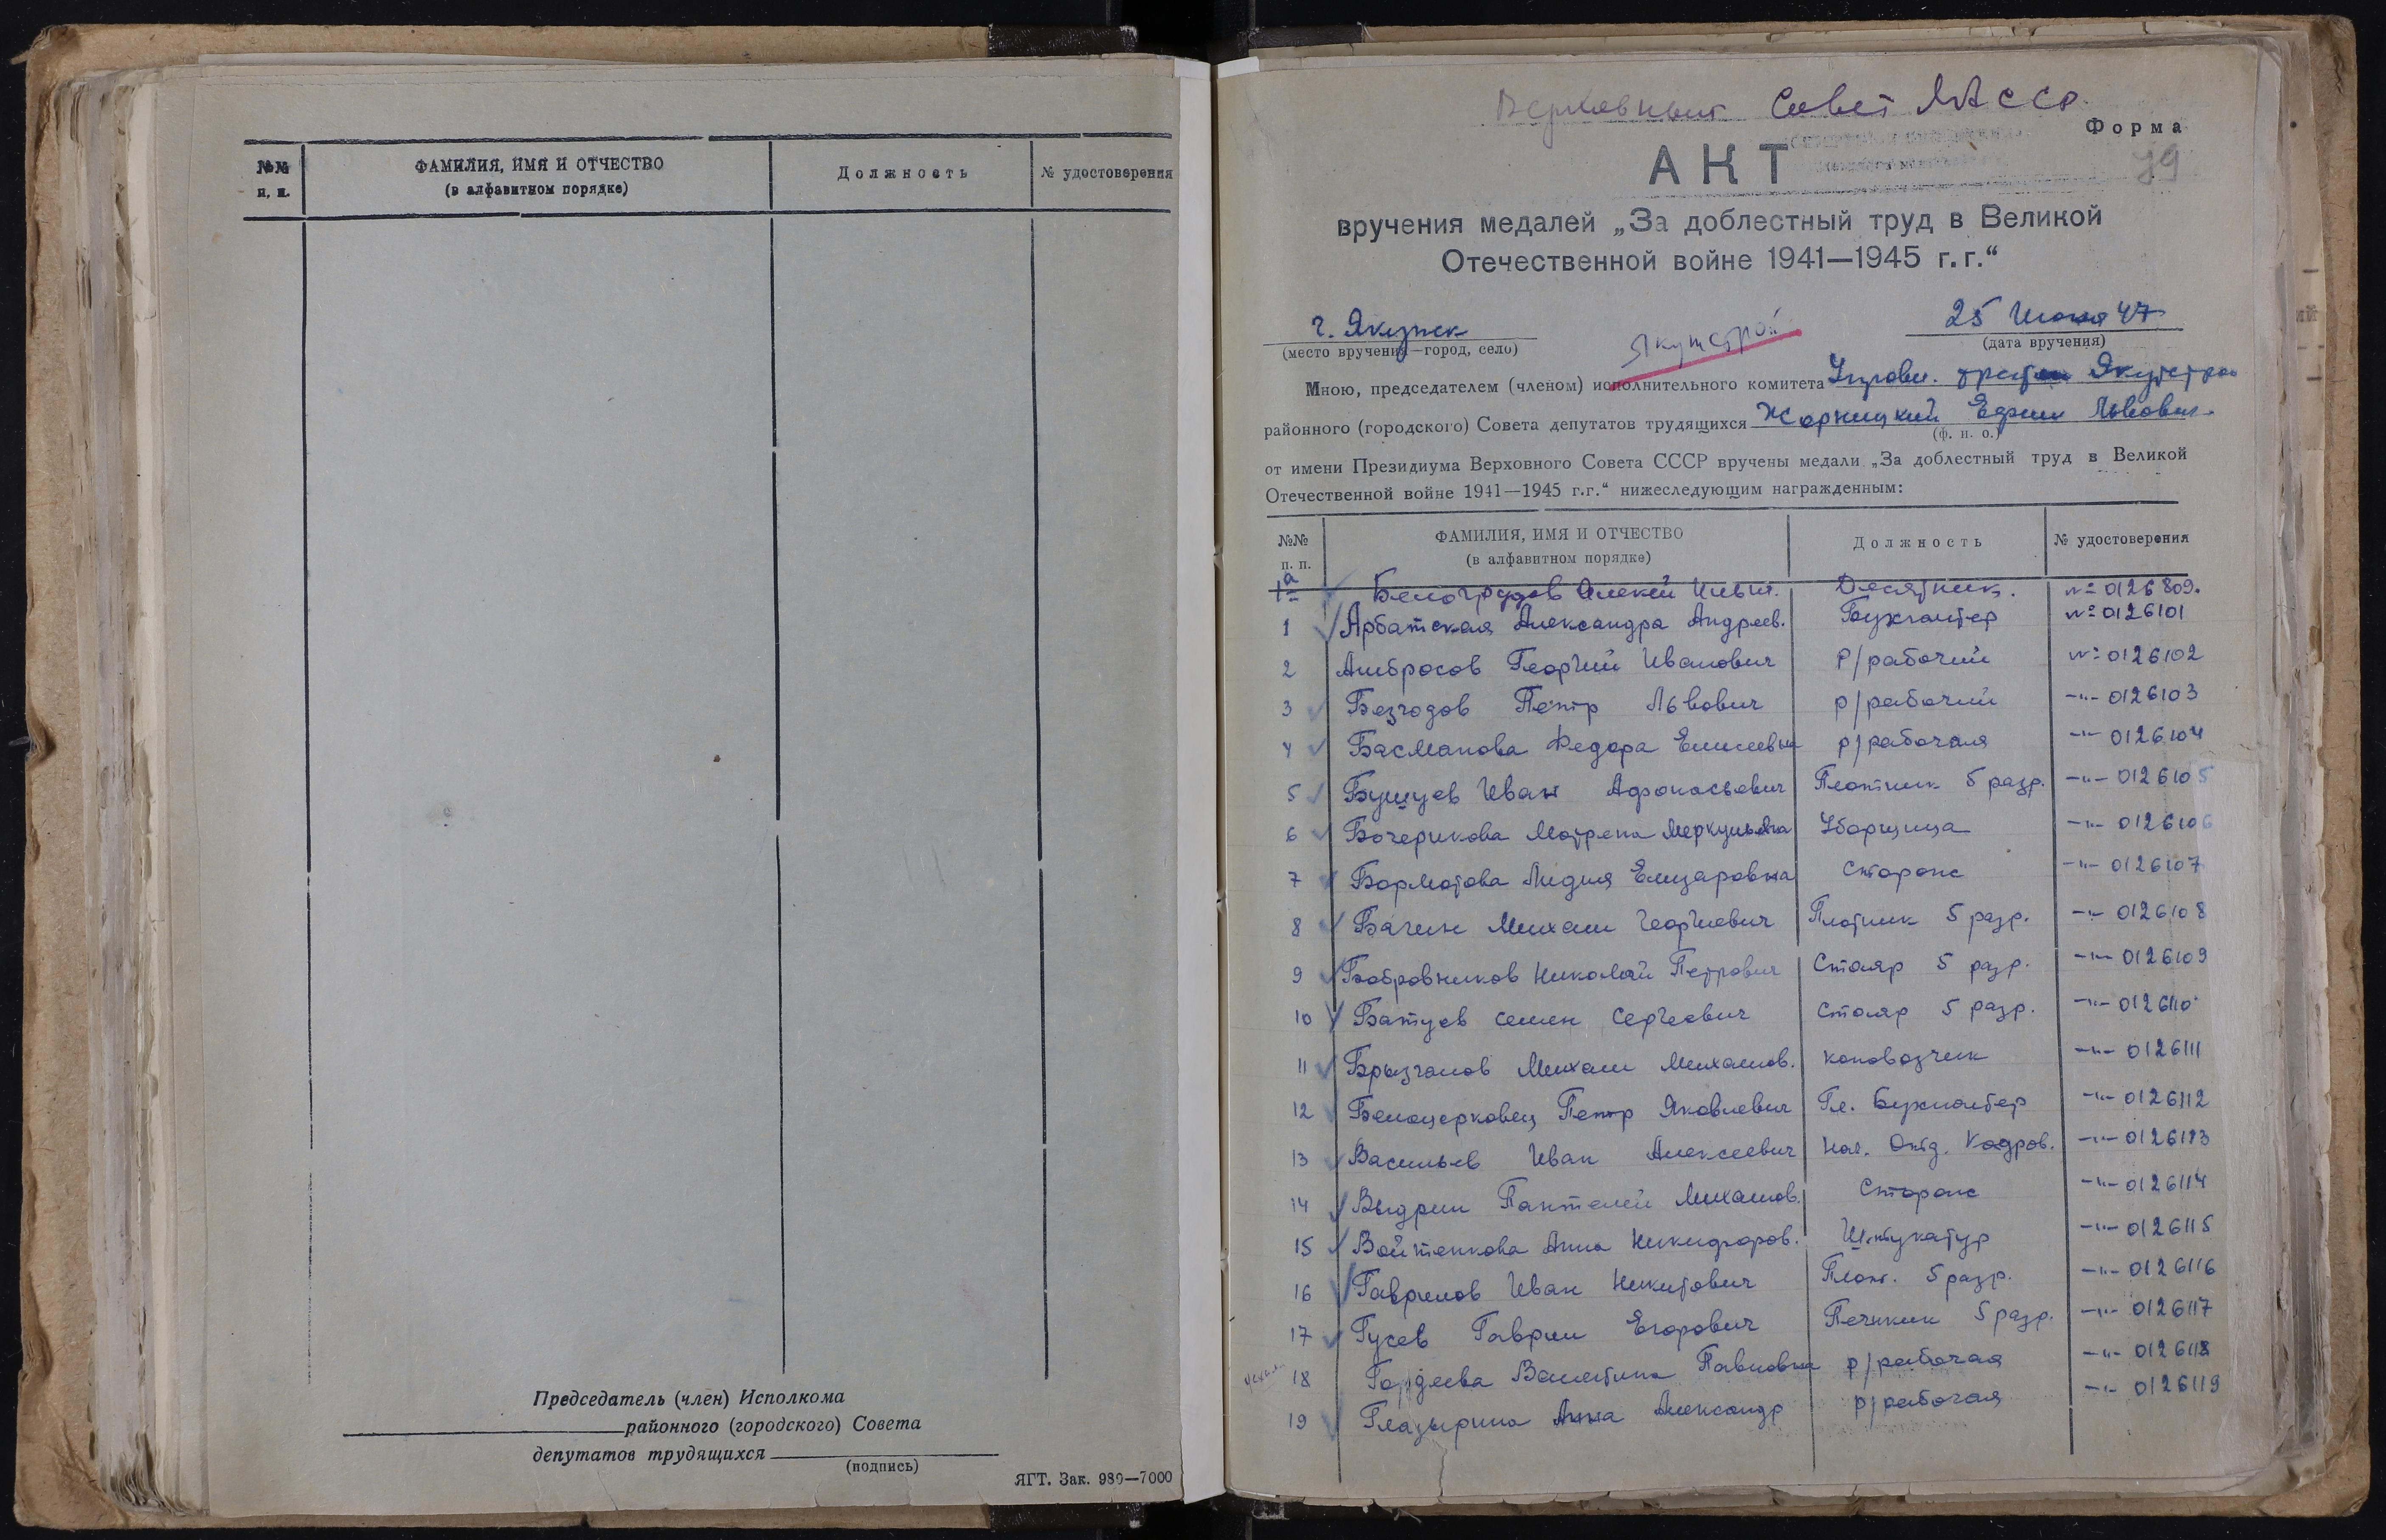 №№ п. п. ФАМИЛИЯ, ИМЯ И ОТЧЕСТВО (в алфавитном порядке) Должность № удостоверения
Председатель (член) Исполкома
районного (городского) Совета
депутатов трудящихся
(подпись)
ЯГТ. Зак. 989—7000
Верховный Совет ЯАССР
Форма
79
АКТ
вручения медалей „За доблестный труд в Великой
Отечественной войне 1941—1945 г.г.“
г. Якутск
25 Июня 47
(место вручения—город, село)
Якутстрой
(дата вручения)
Мною, председателем (членом) исполнительного комитета Управл. Якутстроя
районного (городского) Совета депутатов трудящихся Жорницкий Ефим Львович
(ф. и. о.)
от имени Президиума Верховного Совета СССР вручены медали „За доблестный труд в Великой
Отечественной войне 1941—1945 г.г.“ нижеследующим награжденным:
№№ п. п. ФАМИЛИЯ, ИМЯ И ОТЧЕСТВО (в алфавитном порядке) Должность № удостоверения
1а Белогрудов Алексей Ильич. Десятник. № 0126809.
1 Арбатская Александра Андреев. Бухгалтер № 0126101
2 Амбросов Георгий Иванович Р/рабочий № 0126102
3 Безгодов Петр Львович р/рабочий -"- 0126103
4 Басманова Федора Елисеевна р/рабочая -"- 0126104
5 Бушуев Иван Афонасьевич Плотник 5 разр. -"- 0126105
6 Бочерикова Матрена Меркульевна Уборщица -"- 0126106
7 Бормотова Лидия Елизаровна Сторож -"- 0126107
8 Багин Михаил Георгиевич Плотник 5 разр. -"- 0126108
9 Бобровников Николай Петрович Столяр 5 разр. -"- 0126109
10 Батуев Семен Сергеевич Столяр 5 разр. -"- 0126110
11 Брызгалов Михаил Михайлов. коновозчик -"- 0126111
12 Белоцерковец Петр Яковлевич Гл. Бухгалтер -"- 0126112
13 Васильев Иван Алексеевич Нач. Отд. Кадров. -"- 0126113
14 Выдрин Пантелей Михайлов. Сторож -"- 0126114
15 Войтенкова Анна Никифоров. Штукатур -"- 0126115
16 Гаврилов Иван Никитович Плот. 5 разр. -"- 0126116
17 Гусев Гаврил Егорович Печник 5 разр. -"- 0126117
18 Гордеева Валентина Павловна р/рабочая -"- 0126118
19 Глазырина Анна Александр р/рабочая -"- 0126119